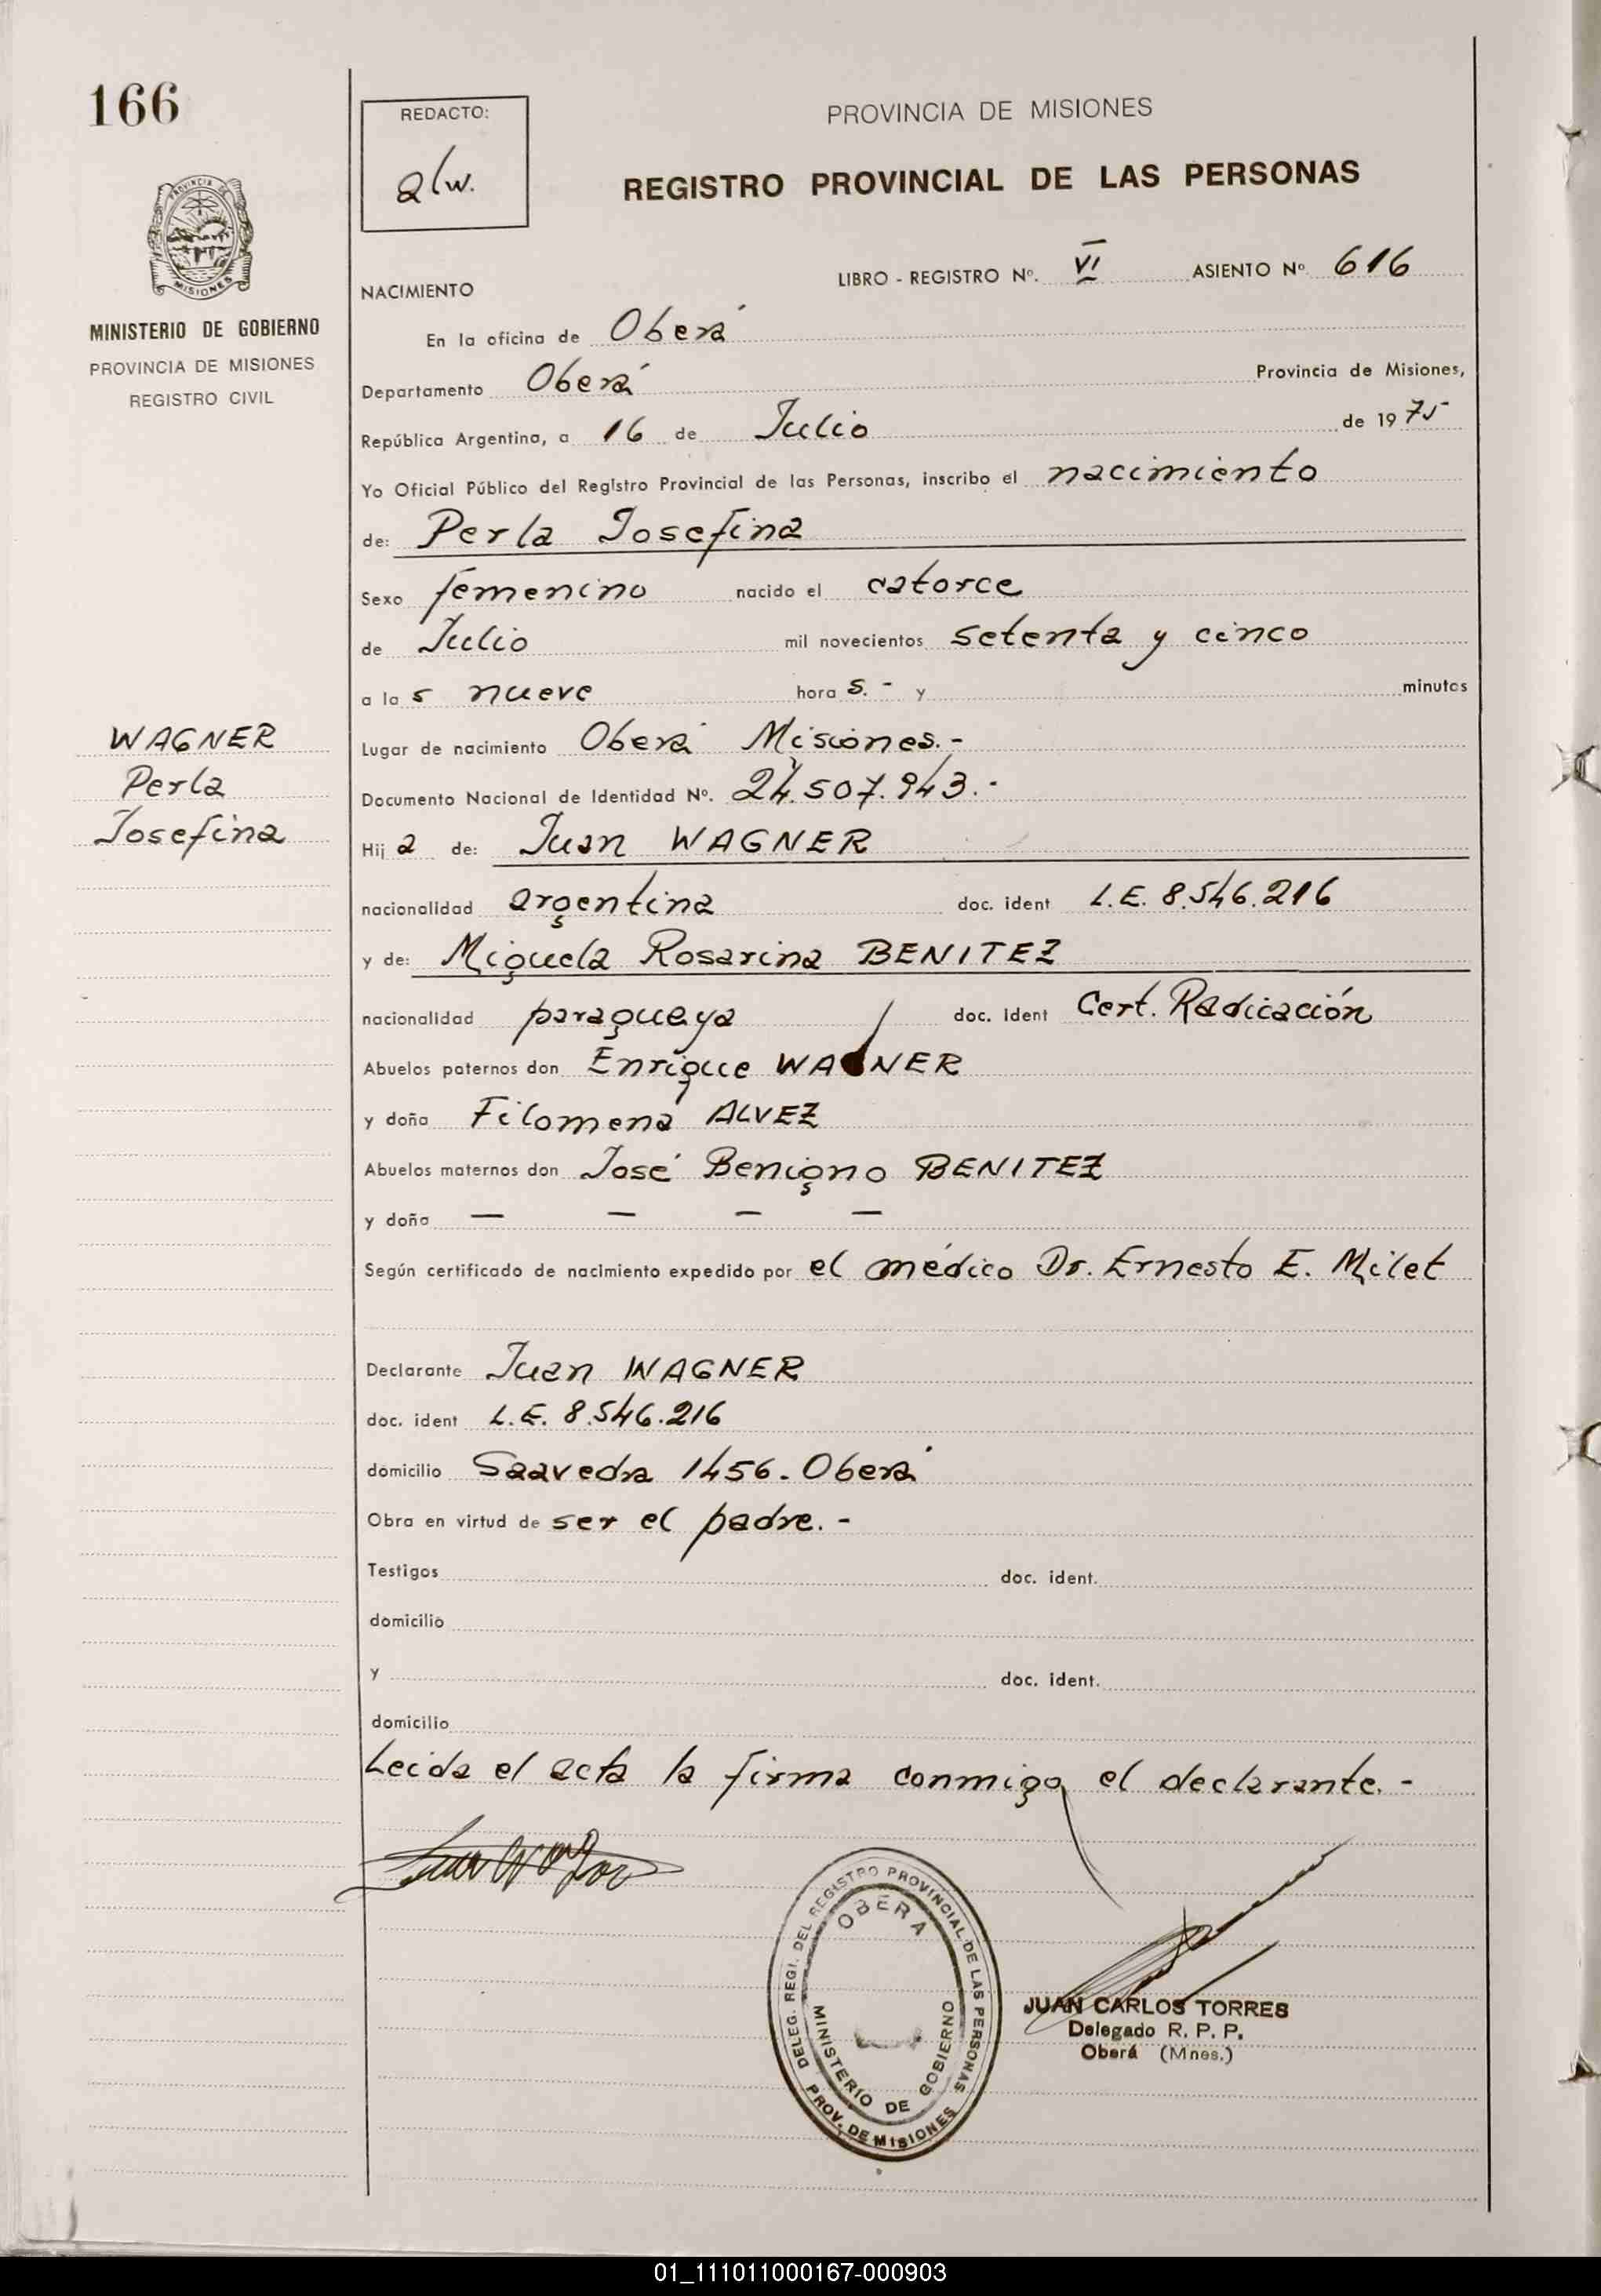 166
REDACTO:
alw.
PROVINCIA DE MISIONES
REGISTRO PROVINCIAL DE LAS PERSONAS
PROVINCIA DE
MISIONES
MINISTERIO DE GOBIERNO
PROVINCIA DE MISIONES
REGISTRO CIVIL
LIBRO - REGISTRO Nº. VI ASIENTO Nº 616
NACIMIENTO
En la oficina de Oberá
Departamento Oberá Provincia de Misiones,
República Argentina, a 16 de Julio de 1975
Yo Oficial Público del Registro Provincial de las Personas, inscribo el nacimiento
de: Perla Josefina
Sexo femenino nacido el catorce
de Julio mil novecientos setenta y cinco
a las nueve horas.- y minutos
Lugar de nacimiento Oberá Misiones.-
Documento Nacional de Identidad Nº. 24.507.943.-
WAGNER
Perla
Josefina
Hija de: Juan WAGNER
nacionalidad argentina doc. ident L.E. 8.546.216
y de: Miguela Rosarina BENITEZ
nacionalidad paraguaya doc. ident Cert. Radicación
Abuelos paternos don Enrique WAGNER
y doña Filomena ALVEZ
Abuelos maternos don José Benigno BENITEZ
y doña — — — —
Según certificado de nacimiento expedido por el médico Dr. Ernesto E. Milet
Declarante Juan WAGNER
doc. ident L.E. 8.546.216
domicilio Saavedra 1456. Oberá
Obra en virtud de ser el padre.-
Testigos doc. ident.
domicilio
y doc. ident.
domicilio
Leida el acta la firma conmigo el declarante.-
DELEG. REGI. DEL REGISTRO PROVINCIAL DE LAS PERSONAS
OBERA
MINISTERIO DE GOBIERNO
PROV. DE MISIONES
JUAN CARLOS TORRES
Delegado R. P. P.
Oberá (Mnes.)
01_111011000167-000903